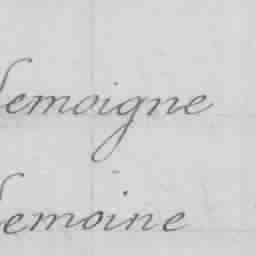 Lemoigne
Lemoine